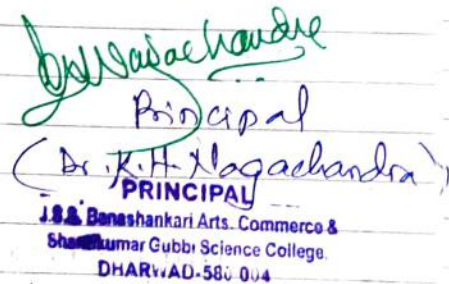 Nagachandra
Principal
(Dr. K.H. Nagachandra)
PRINCIPAL
J.S.S. Banashankari Arts. Commerce &
Shantikumar Gubbi Science College.
DHARWAD-580 004